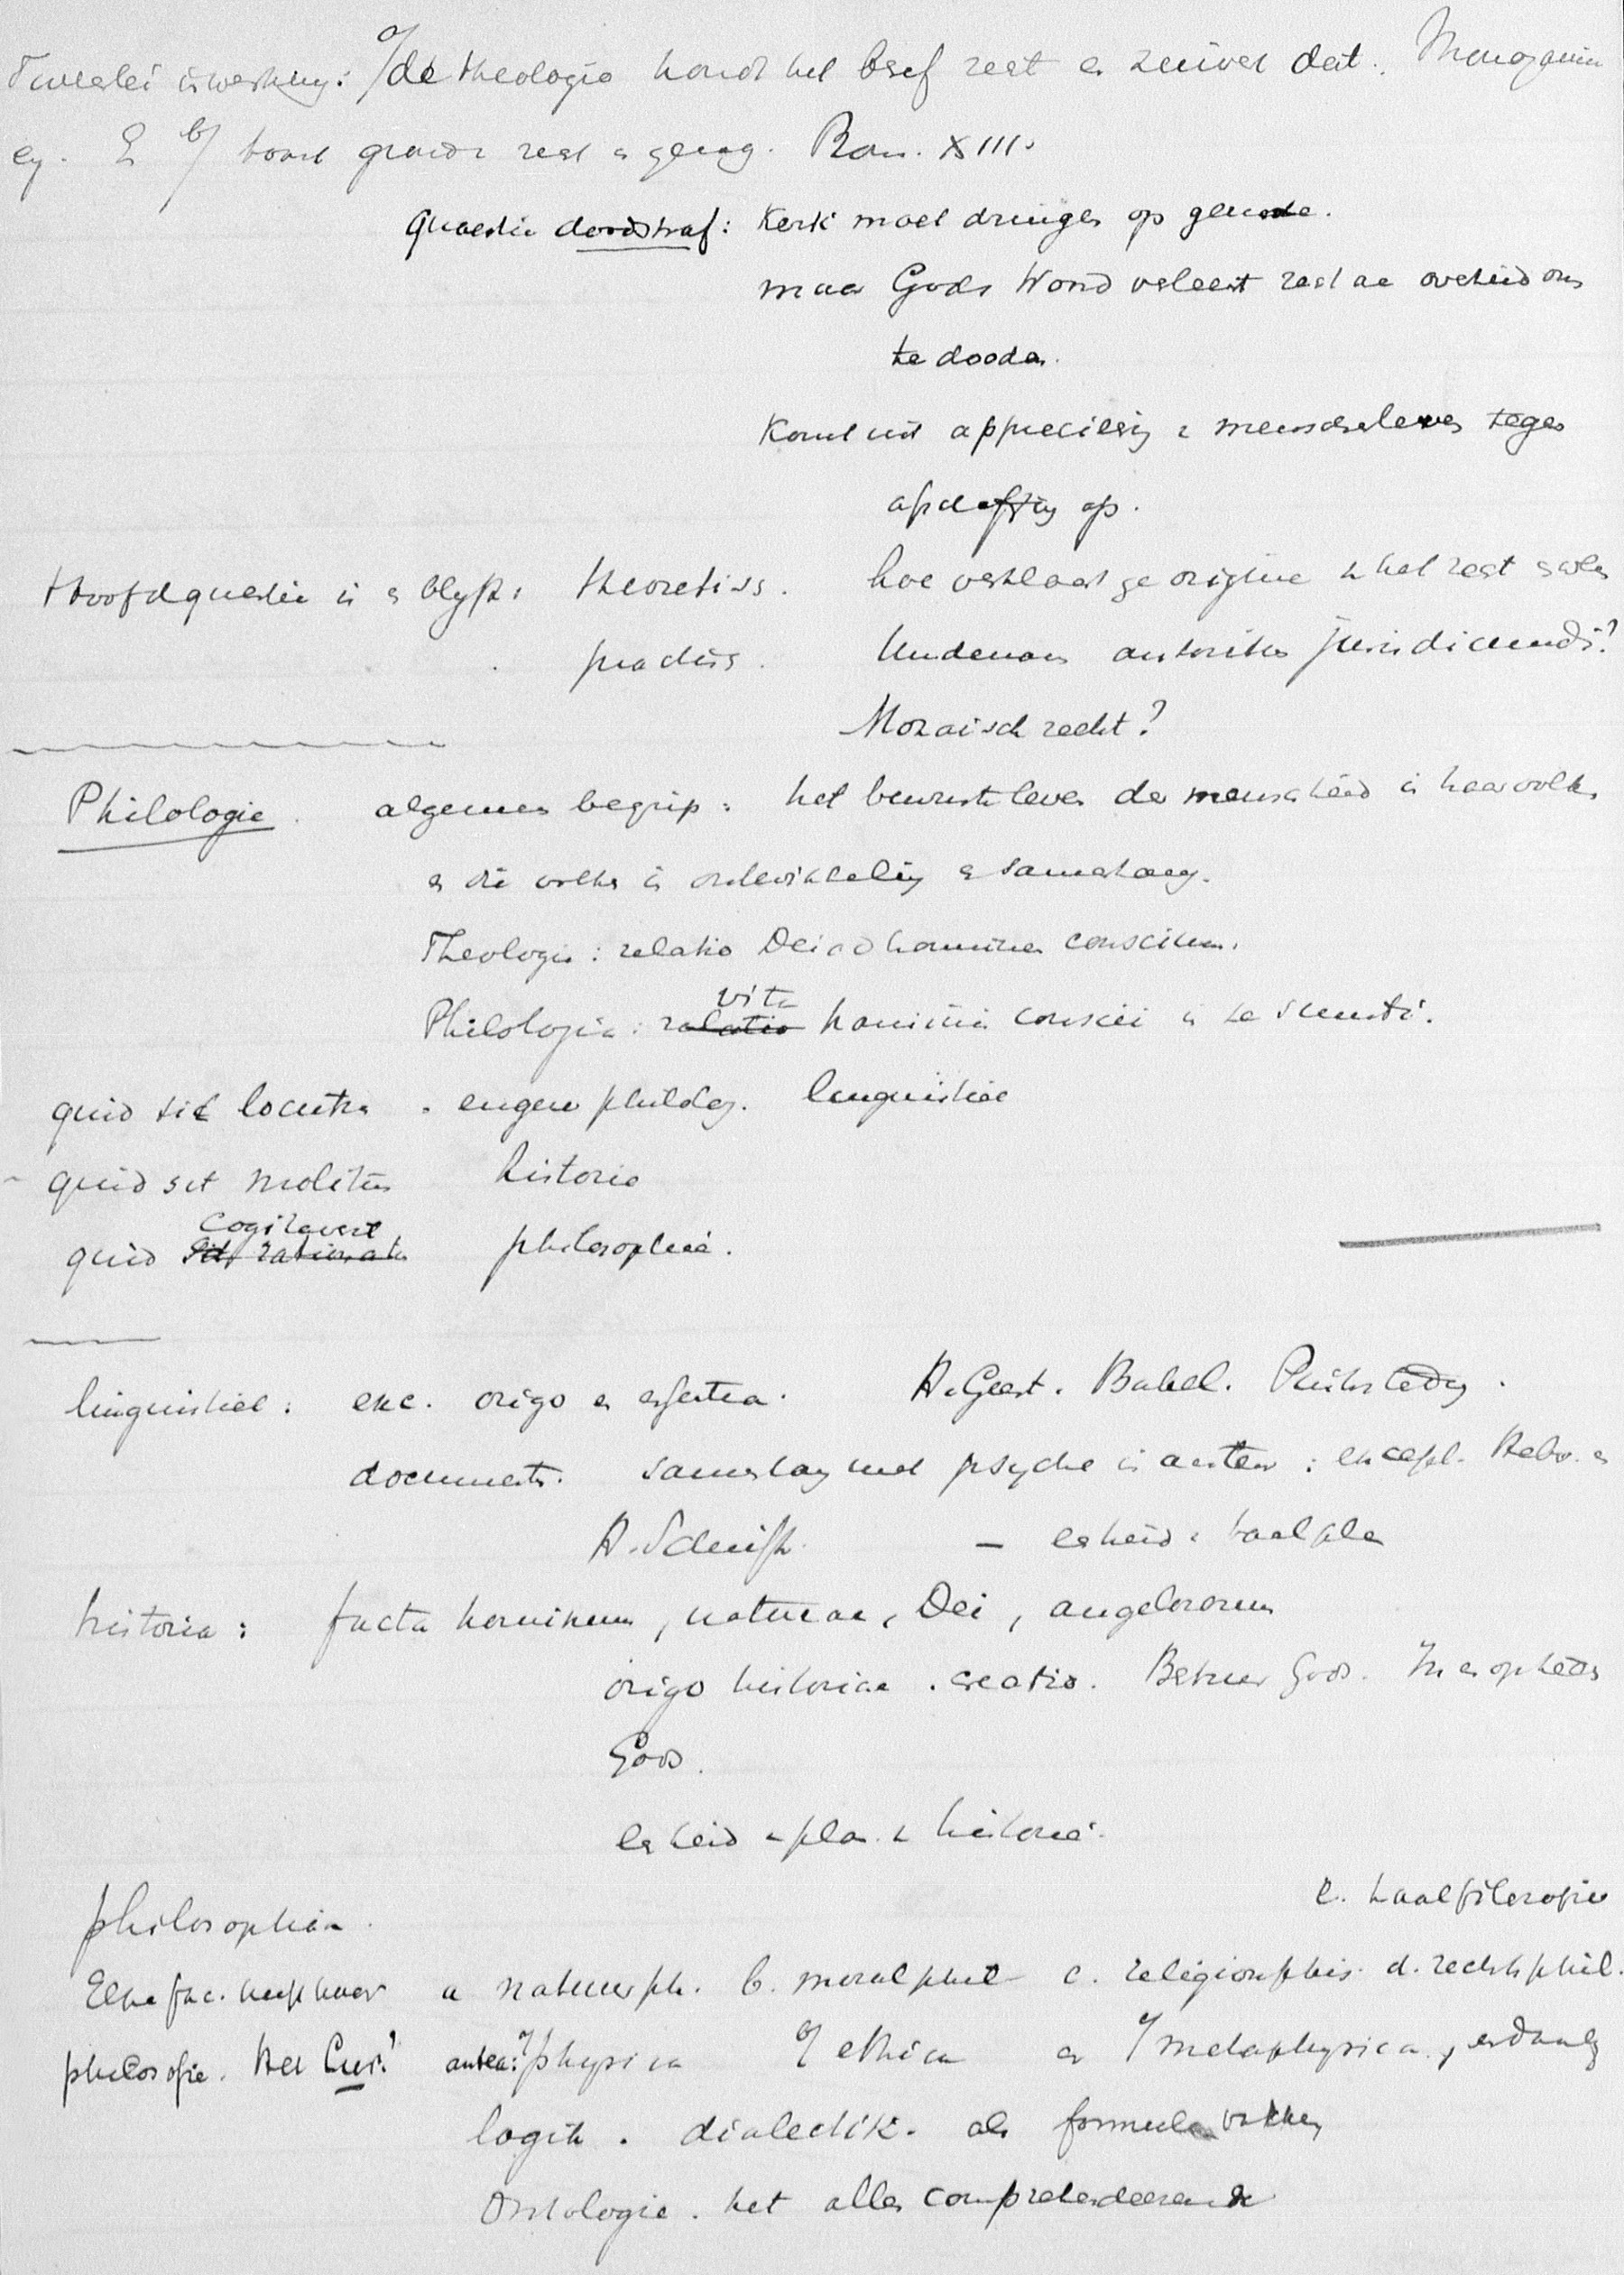 Tweeërlei inwerking: a/ de theologie houdt het besef recht en zuiver dat.
en. b/ toont gronden recht en gezag. Rom. XIII.
Quaestie doodstraf: Kerk moet dringen op genade.
maar Gods Woord verleent recht ae overheid om
te dooden.
Komt uit appreciering menschenleven tegen
op.
Hoofdquaestie is en blijft: theoretisch. hoe verklaart ge origine v het recht
practisch. Undenam autoritas juris dicendi?
Mozaisch recht?
Philologie. algemeen begrip: het bewuste leven der menschheid in haar volken
en die volken in ontwikkeling en samenhang.
Theologie: relatio Dei ad hominem conscium.
Philologia: relatio vita hominis conscii in se
quid sit locutus. engere philolog. linguistiek
quid sit molitus historie
quid sit rationatus cogitaverit philosophie.
linguistiek: exc. origo en H. Geest. Babel. Pinksterdag.
documenta. samenhang met psyche in auteur: except. Hebr. en
H. Schrift. — eenheid v taalplan
historia: facta hominum, naturae, Dei, angelorum
origo historiae. creatio. Bestuur Gods. In en ophouden
Gods.
eenheid v plan v historie.
e. taalfilosofie
philosophia.
Elke fac. heeft haar a natuurph. b. moraalphil c. religionsphis. d. rechtsphil.
philosofie. Het Cur? antea: a/ physica b/ ethica en c/ metaphysica,
logik. dialectik. als formeele vakken
Ontologie. het alles comprehendeerende